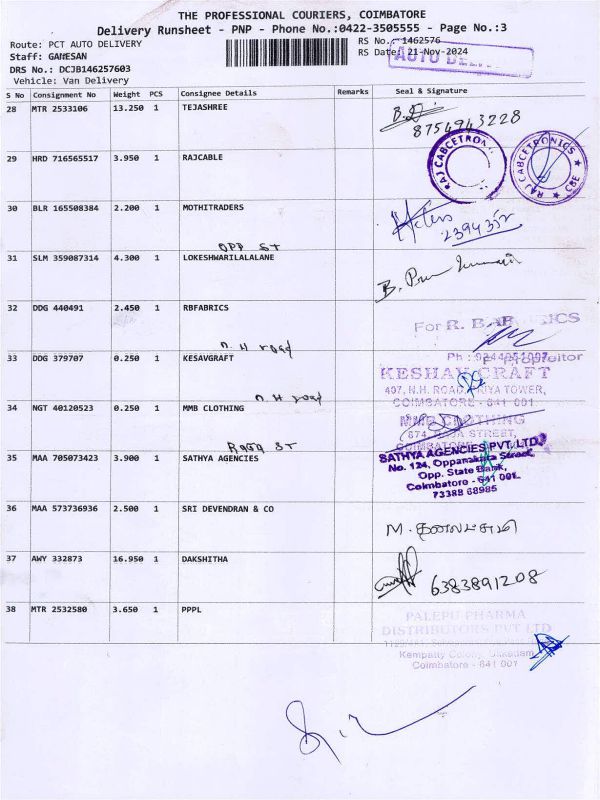 THE PROFESSIONAL COURIERS, COIMBATORE
Delivery Runsheet - PNP - Phone No.:0422-3505555 - Page No.:3
Route: PCT AUTO DELIVERY
RS No.: 1462576
Staff: GANESAN
RS Date: 21-Nov-2024
AUTO DEL
DRS No.: DCJB146257603
Vehicle: Van Delivery
S No Consignment No Weight PCS Consignee Details Remarks Seal & Signature
28 MTR 2533106 13.250 1 TEJASHREE
8754943228
29 HRD 716565517 3.950 1 RAJCABLE
RAJ CABCETRON
RAJ CABCETRONICS ★ CBE ★
30 BLR 165508384 2.200 1 MOTHITRADERS
OPP ST
31 SLM 359087314 4.300 1 LOKESHWARILALALANE
32 DDG 440491 2.450 1 RBFABRICS
For R. B ICS
Proprietor
N H road
33 DDG 379707 0.250 1 KESAVGRAFT
KESHAV CRAFT
407, N.H. ROAD, TOWER,
COIMBATORE - 641 001
N H road
34 NGT 40120523 0.250 1 MMB CLOTHING
MMB CLOTHING
STREET,
Raja ST
35 MAA 705073423 3.900 1 SATHYA AGENCIES
SATHYA AGENCIES PVT. LTD.
No. 124, Oppanakara Street,
Opp. State Bank,
Coimbatore - 641 001.
73388 68985
36 MAA 573736506 2.500 1 SRI DEVENDRAN & CO
37 AWY 332873 16.950 1 DAKSHITHA
6383891208
38 MTR 2532580 3.650 1 PPPL
PALEPU PHARMA
DISTRIBUTORS PVT LTD
Kempatty Colony,
Coimbatore - 641 001